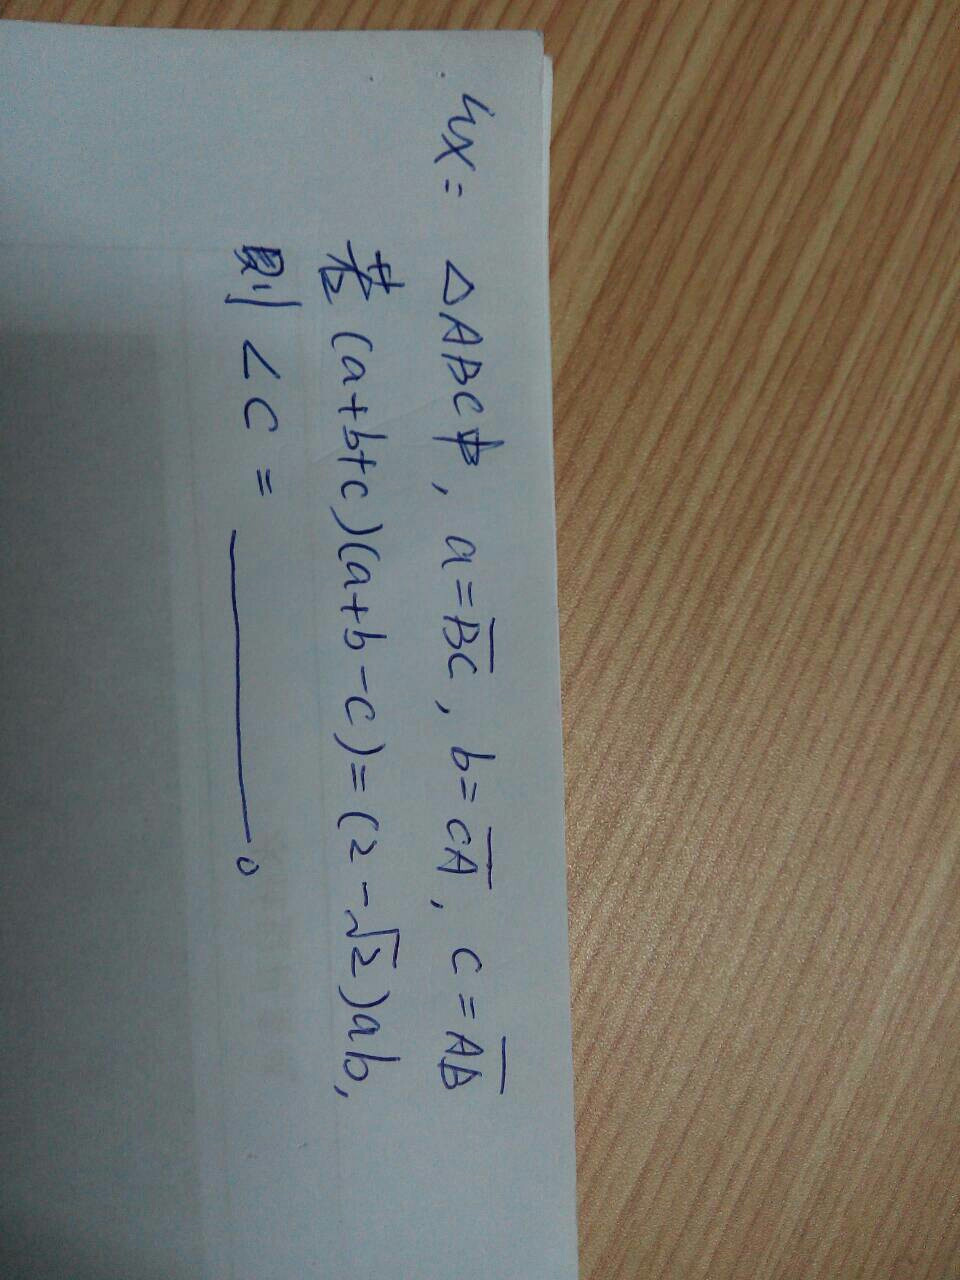 ux= △ABC中, a=B̅C̅, b=C̅A̅, c=A̅B̅
若 (a+b+c)(a+b-c)=(2-√2)ab,
則 ∠C = ______。